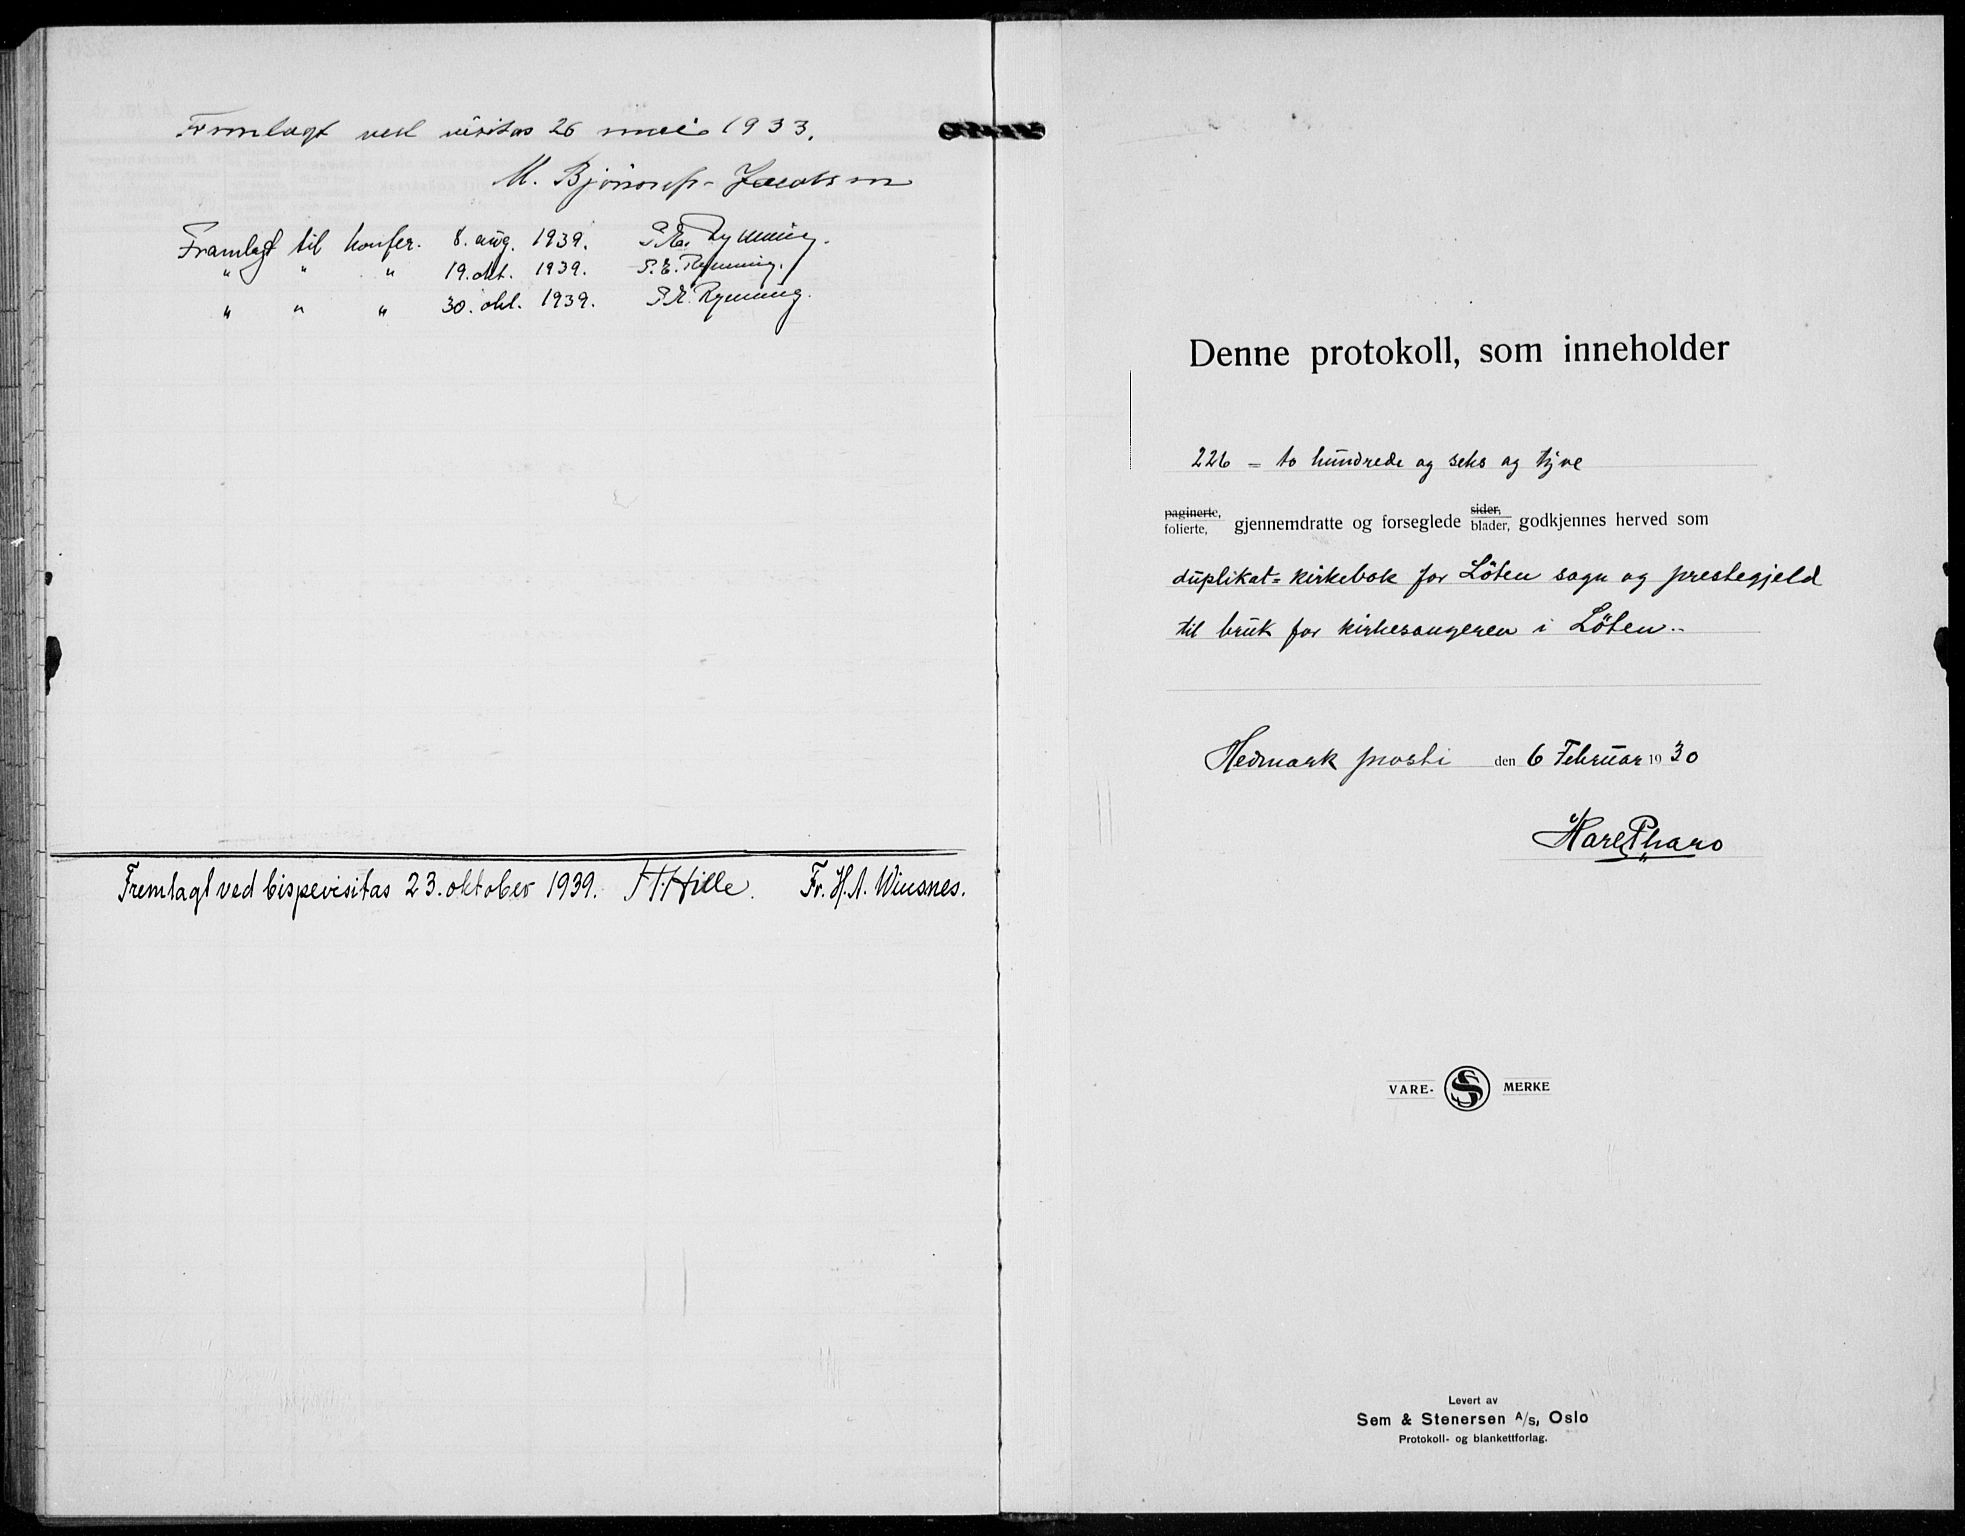 Fremlagt ved visitas 26 mai 1933.
M. Bjönnes-Jacobsen
Framlagt til konfer. 8. aug. 1939. P. E. Rynning.
" " " 19. okt. 1939. P. E. Rynning.
" " " 30. okt. 1939. P. E. Rynning.
Fremlagt ved bispevisitas 23. oktober 1939. H. Hille. Fr. H. A. Winsnes.
Denne protokoll, som inneholder
226 = to hundrede og seks og tyve
paginerte, folierte, gjennemdratte og forseglede sider, blader, godkjennes herved som
duplikat=kirkebok for Löten sogn og prestegjeld
til bruk for kirkesangeren i Löten..
Hedmark prosti den 6 Februar 1930
Karl Pharo
VARE- S MERKE
Levert av
Sem & Stenersen A/s, Oslo
Protokoll- og blankettforlag.